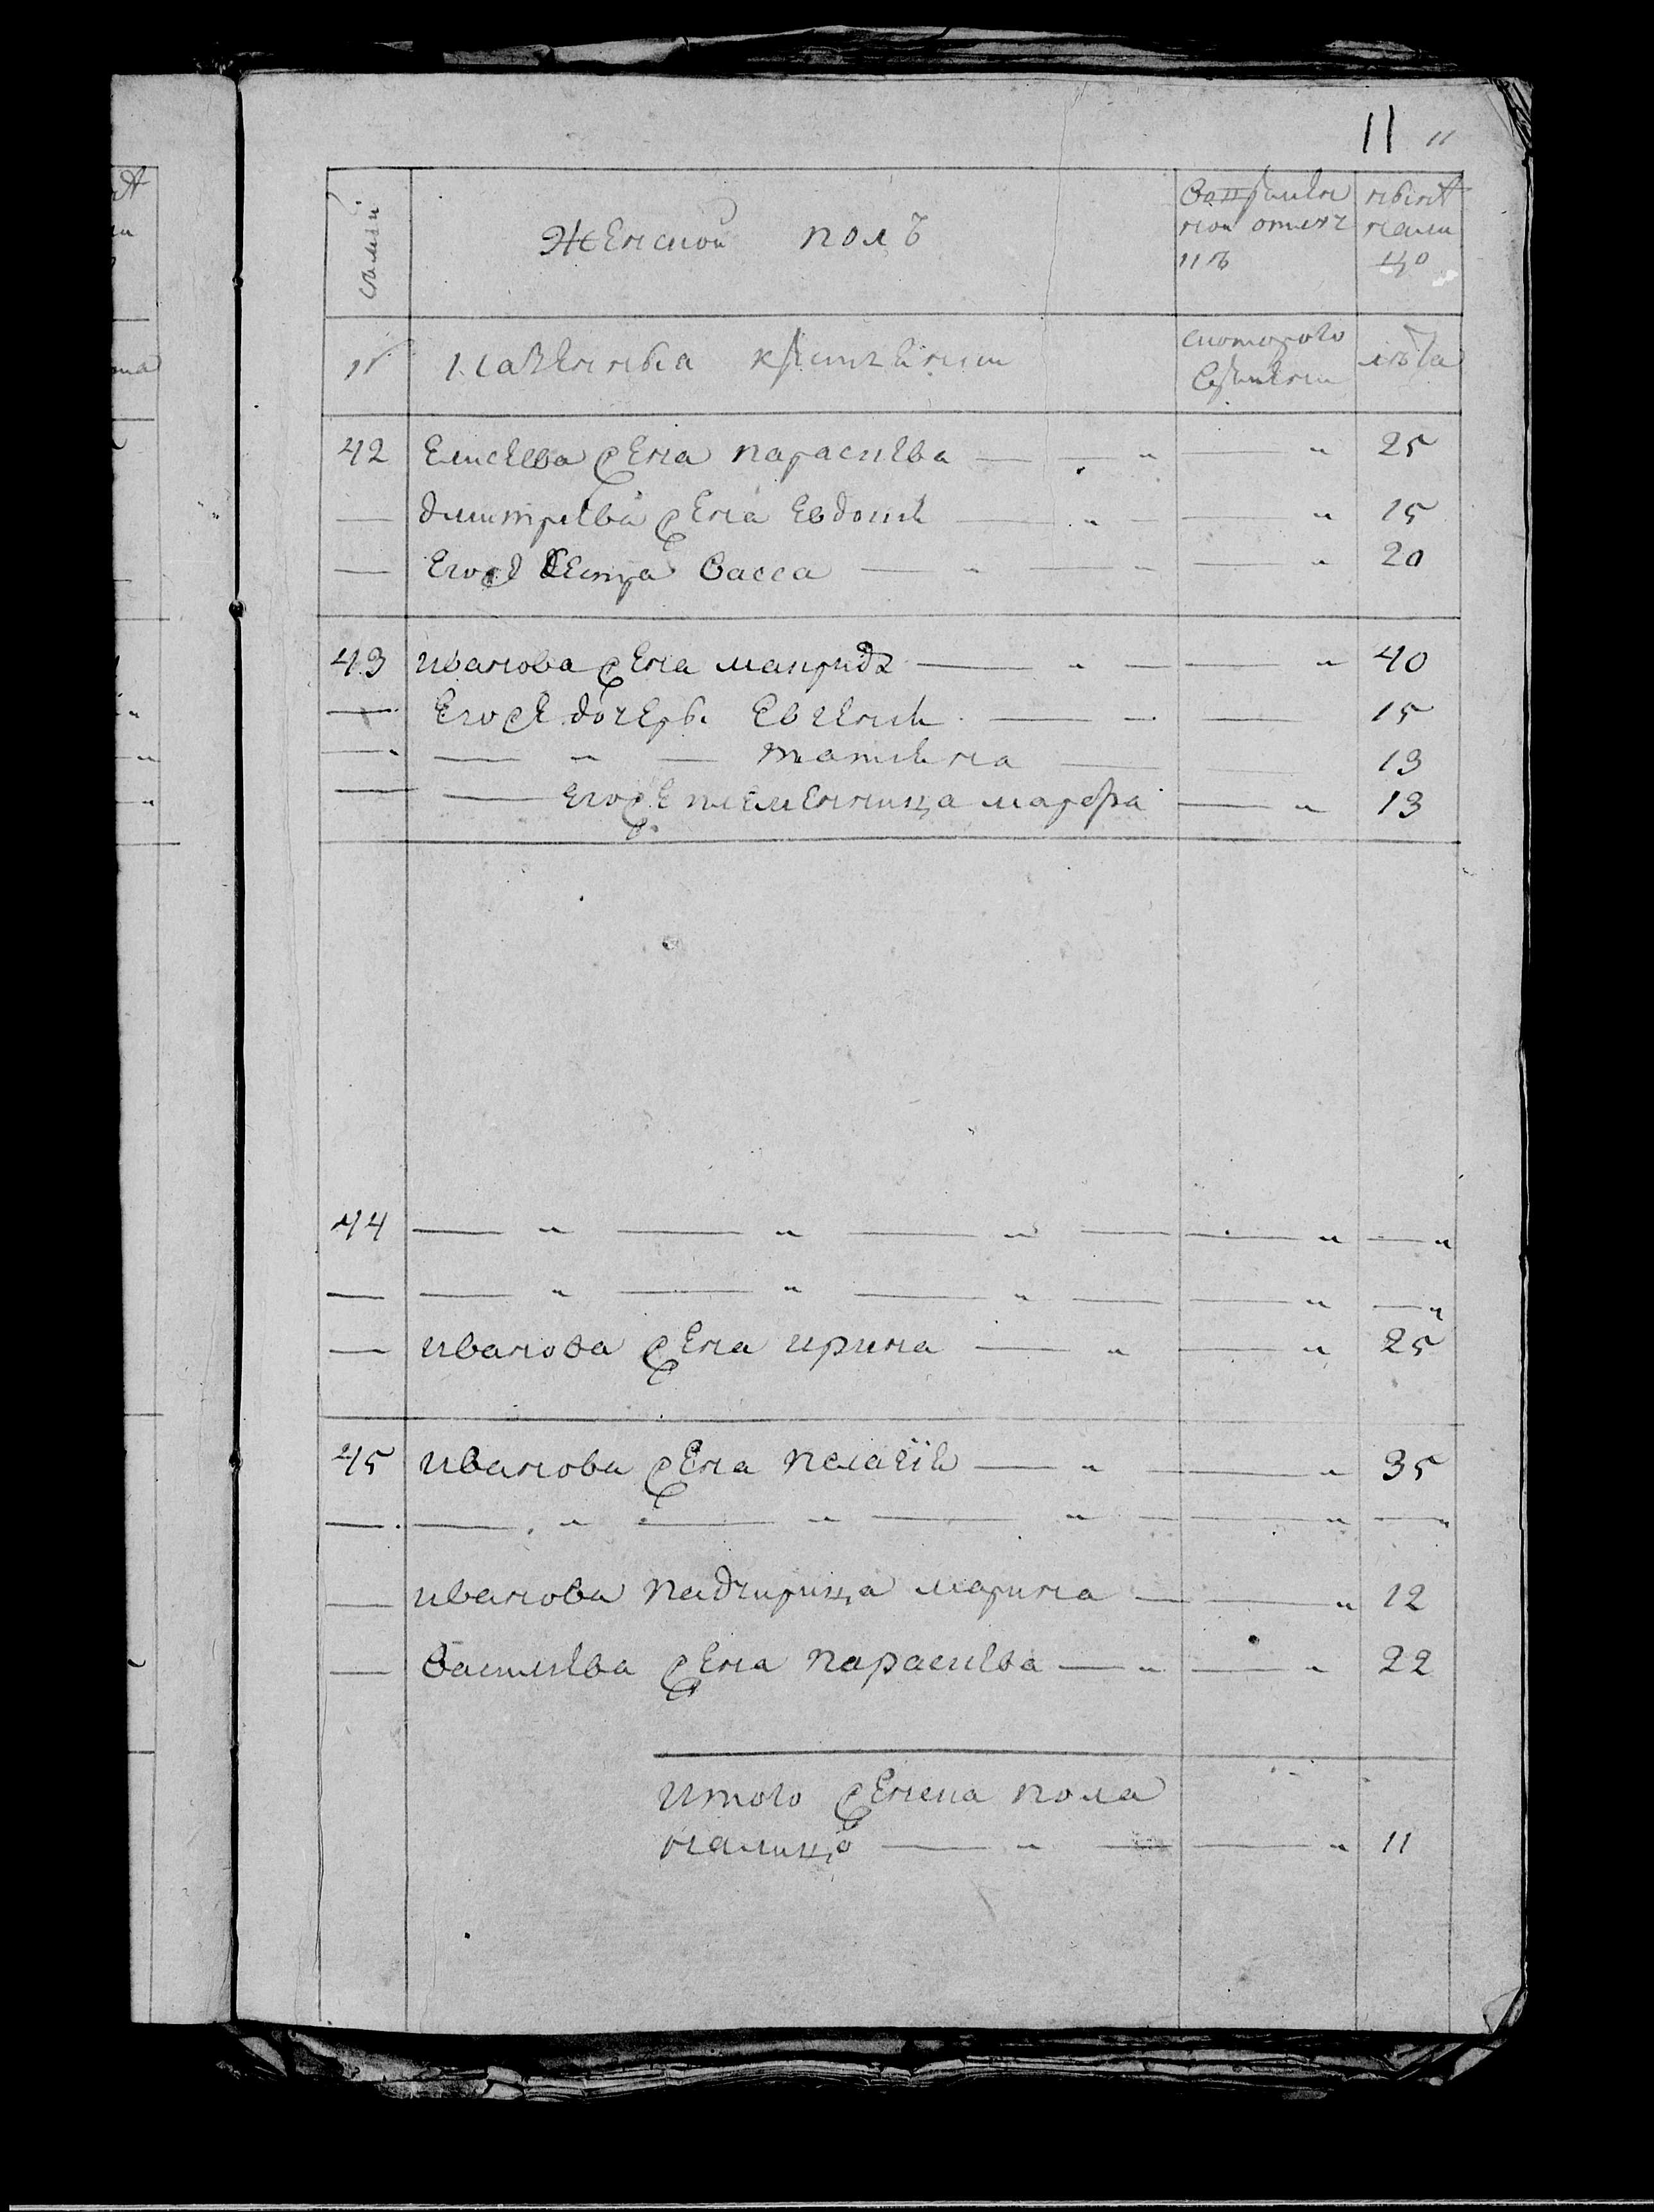 11 11
семьи
Женской полъ
Вовремен
ной отлуч
къ
нынѣ
нали
цо
№
Казенныя крестьяне
скоторого
времени
лѣта
42 Елисеева жена парасквва — — " — " 25
— дмитрева жена Евдокия — " — — " 15
— Егожъ Сестра Васса — " — " — " 20
43 иванова жена макрида — " — — " 40
— Егоже дочерь Евгения — " — 15
— — " — татияна — 13
— — Егоже племенница марфра — " 13
44 — " — " — " — — " — "
— — " — " — " — — " — "
— иванова жена ирина — " — " 25
45 иванова жена пелагiя — " — " 35
— — " — " — " — — " — "
— иванова падчирица марина — — " 12
— василева жена парасквва — " — " 22
Итого женска пола
налицо — " — — " 11